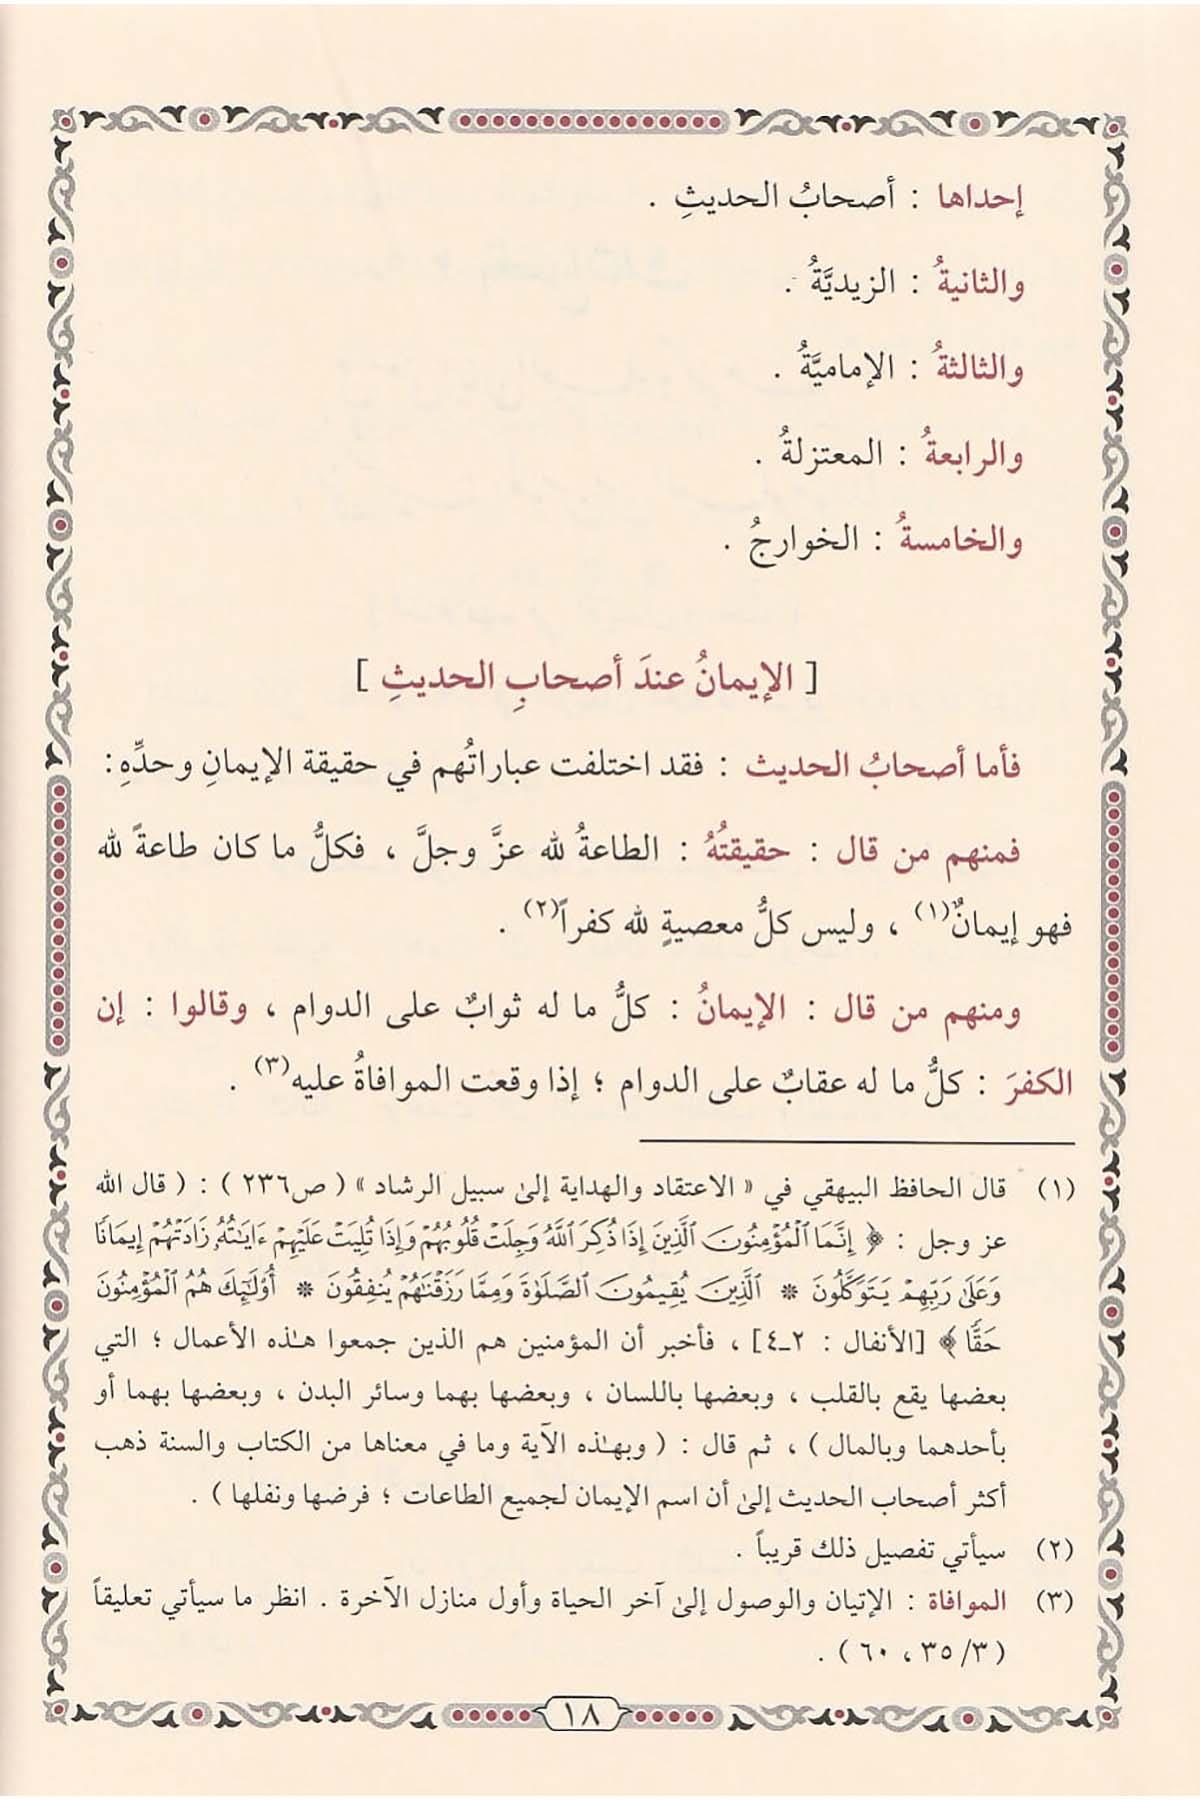 إحداها : أصحابُ الحديثِ .
والثانيةُ : الزيديَّةُ .
والثالثةُ : الإماميَّةُ .
والرابعةُ : المعتزلةُ .
والخامسةُ : الخوارجُ .
[ الإيمانُ عندَ أصحابِ الحديثِ ]
فأما أصحابُ الحديث : فقد اختلفت عباراتُهم في حقيقة الإيمانِ وحدِّهِ :
فمنهم من قال : حقيقتُهُ : الطاعةُ لله عزَّ وجلَّ ، فكلُّ ما كان طاعةً لله
فهو إيمانٌ(١) ، وليس كلُّ معصيةٍ لله كفراً(٢) .
ومنهم من قال : الإيمانُ : كلُّ ما له ثوابٌ على الدوام ، وقالوا : إن
الكفرَ : كلُّ ما له عقابٌ على الدوام ؛ إذا وقعت الموافاةُ عليه(٣) .
(١) قال الحافظ البيهقي في « الاعتقاد والهداية إلىٰ سبيل الرشاد » ( ص٢٣٦ ) : ( قال الله
عز وجل : ﴿ إِنَّمَا ٱلْمُؤْمِنُونَ ٱلَّذِينَ إِذَا ذُكِرَ ٱللَّهُ وَجِلَتْ قُلُوبُهُمْ وَإِذَا تُلِيَتْ عَلَيْهِمْ ءَايَٰتُهُۥ زَادَتْهُمْ إِيمَانًا
وَعَلَىٰ رَبِّهِمْ يَتَوَكَّلُونَ * ٱلَّذِينَ يُقِيمُونَ ٱلصَّلَوٰةَ وَمِمَّا رَزَقْنَٰهُمْ يُنفِقُونَ * أُوْلَٰٓئِكَ هُمُ ٱلْمُؤْمِنُونَ
حَقًّا ﴾ [الأنفال : ٢ـ٤] ، فأخبر أن المؤمنين هم الذين جمعوا هـٰذه الأعمال ؛ التي
بعضها يقع بالقلب ، وبعضها باللسان ، وبعضها بهما وسائر البدن ، وبعضها بهما أو
بأحدهما وبالمال ) ، ثم قال : ( وبهـٰذه الآية وما في معناها من الكتاب والسنة ذهب
أكثر أصحاب الحديث إلىٰ أن اسم الإيمان لجميع الطاعات ؛ فرضها ونفلها ) .
(٢) سيأتي تفصيل ذلك قريباً .
(٣) الموافاة : الإتيان والوصول إلىٰ آخر الحياة وأول منازل الآخرة . انظر ما سيأتي تعليقاً
( ٣/ ٣٥ ، ٦٠ ) .
١٨